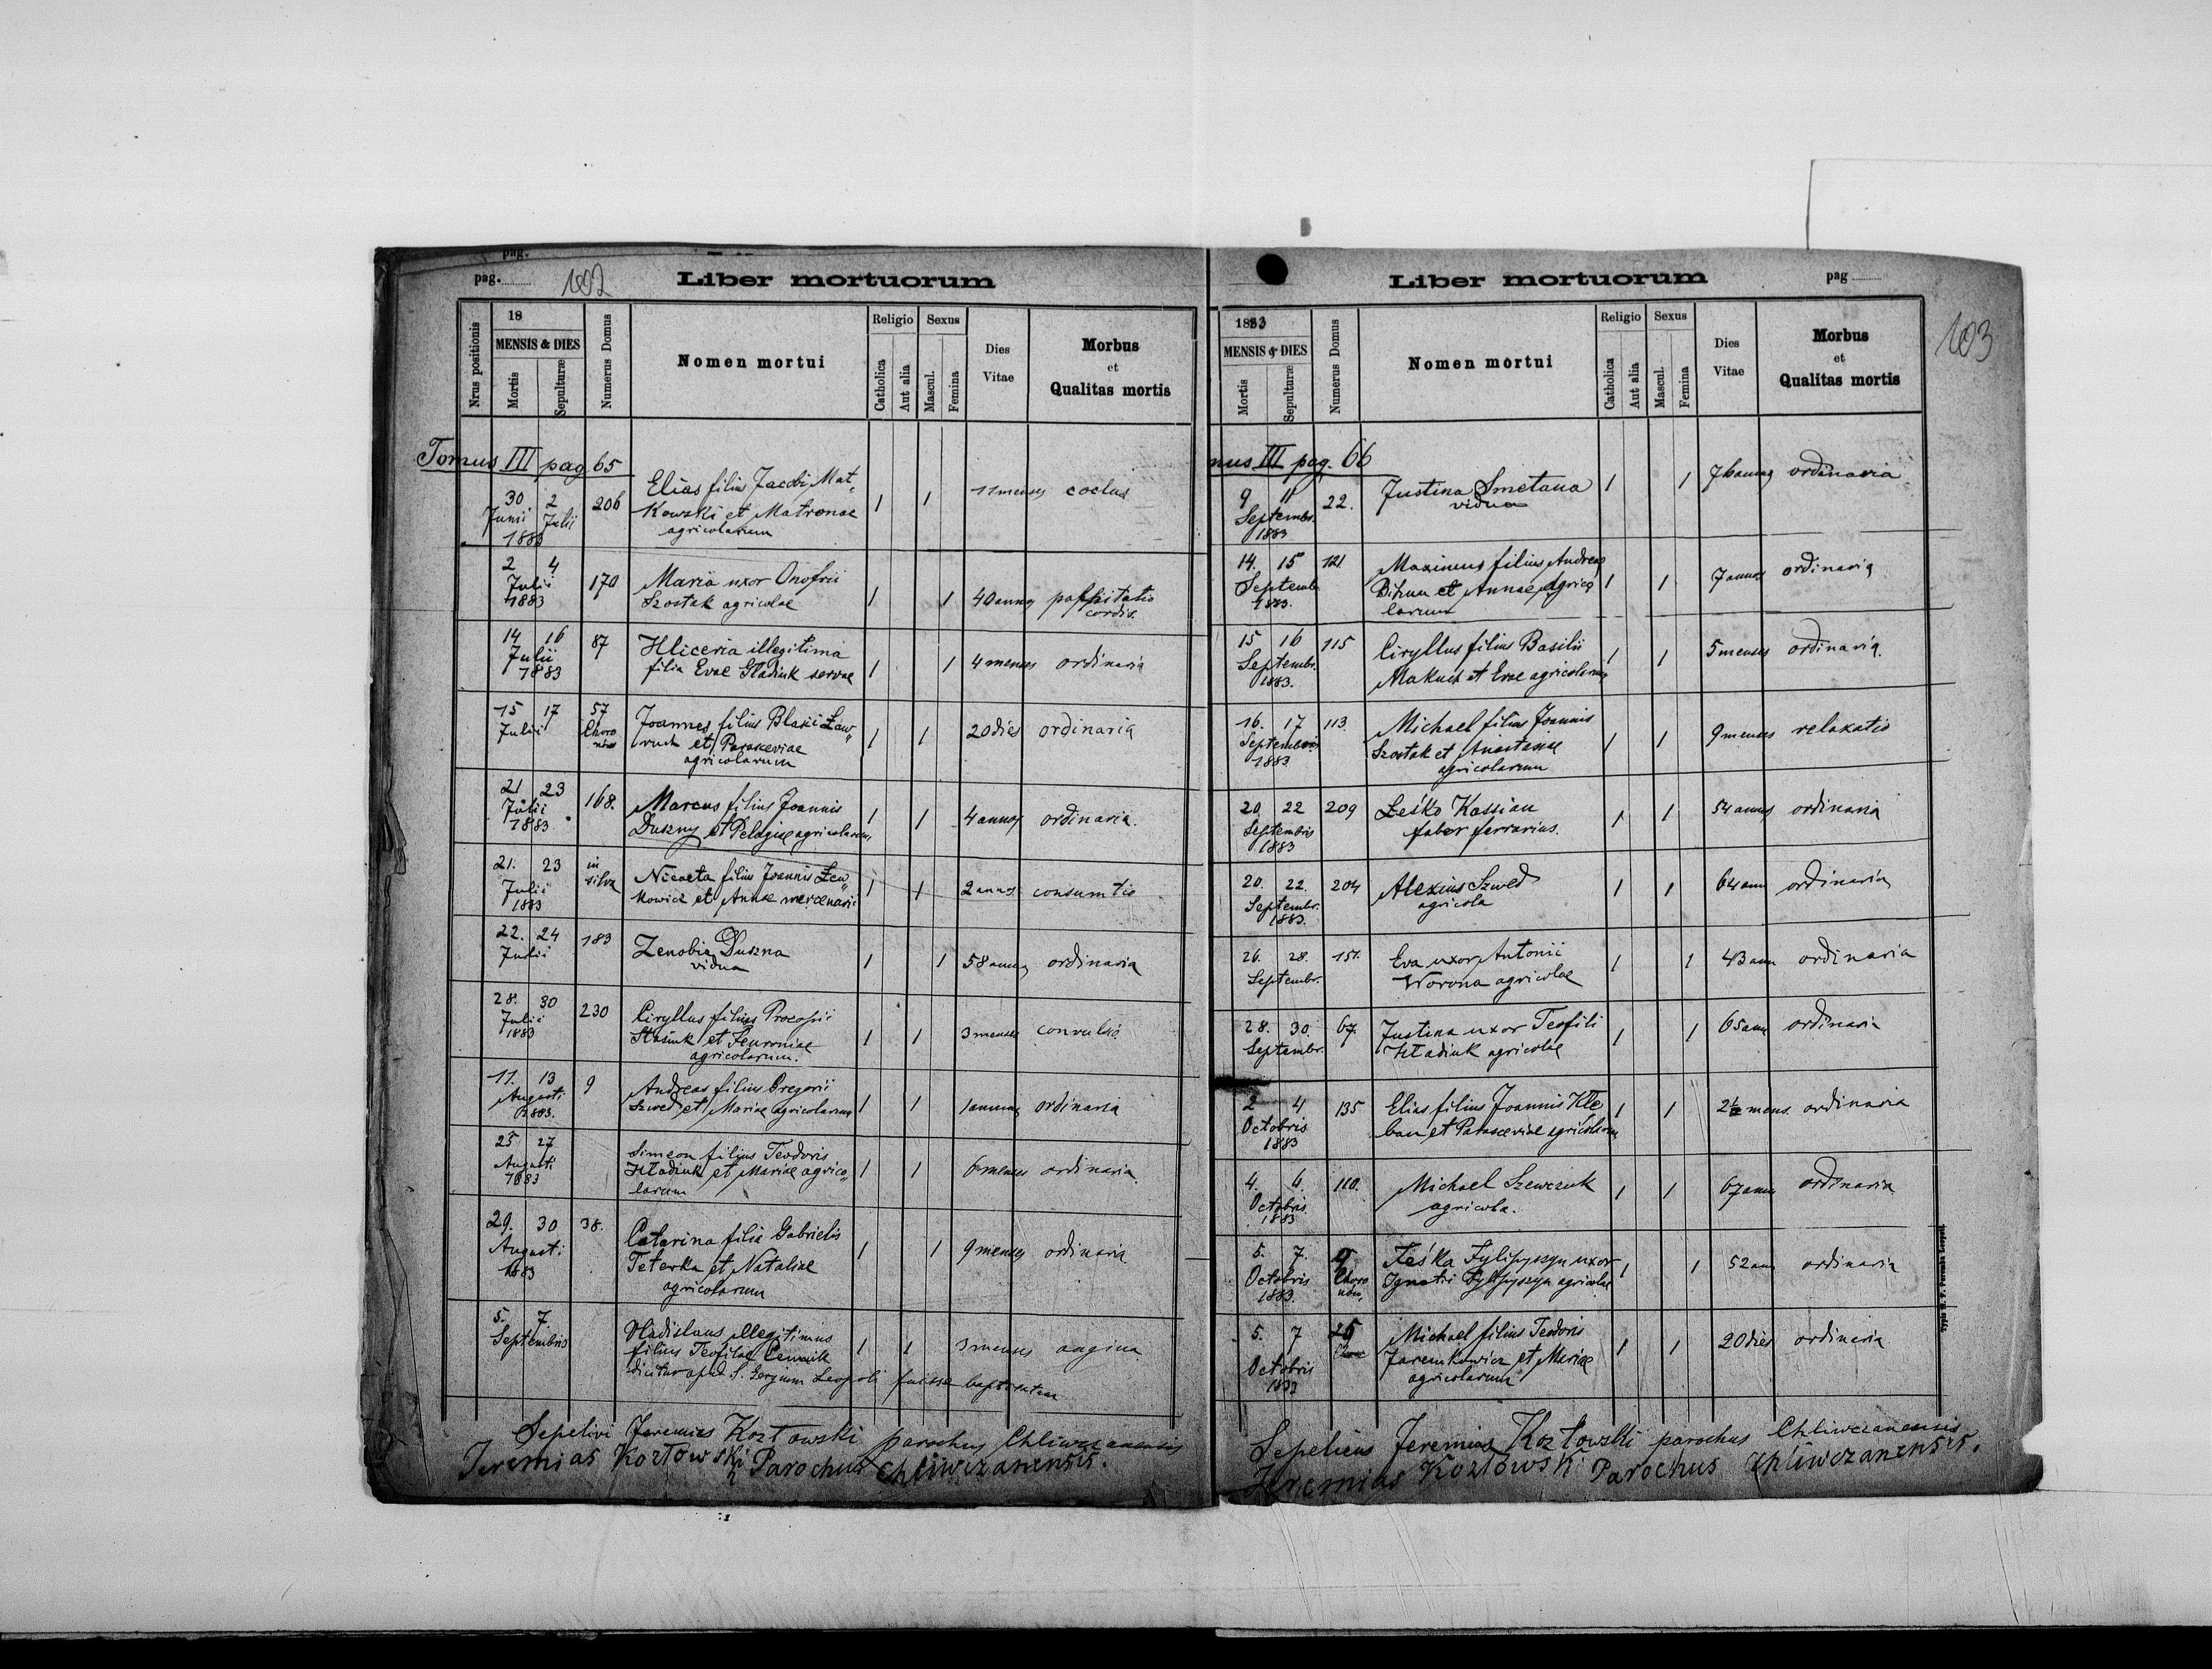 pag.
pag. 102
Liber mortuorum
Nrus positionis
18
MENSIS & DIES
Mortis
Sepulturæ
Numerus Domus
Nomen mortui
Religio
Catholica
Aut alia
Sexus
Mascul.
Femina
Dies
Vitae
Morbus
et
Qualitas mortis
Tomus III pag 65
30 2 206 Elias filius Jacobi Mat„ 1 1 11 menses coclus
Junii Julii Kowski et Matronae
1883 agricolarum
2 4 170 Maria uxor Onofrii 1 1 40 annos palpitatio
Julii Szostak agricolae cordis.
1883
14 16 87 Hliceria illegitima 1 1 4 menses ordinaria
Julii filia Evae Hladiuk servae
1883
15 17 57 Joannes filius Blasii Ław„ 1 1 20 dies ordinaria
Julii Choro nów ruch et Parasceviae
agricolarum
21 23 168. Marcus filius Joannis 1 1 4 annos ordinaria.
Julii Duszny et Pelagiae agricolarum
1883
21. 23 in silva Niceeta filius Joannis Lew„ 1 1 2 annos consumtio
Julii kowicz et Annae mercenarii
1883
22. 24 183 Zenobia Duszna 1 1 58 annos ordinaria
Julii vidua
28. 30 230 Ciryllus filius Procopii 1 1 3 menses convulsio
Julii Stasiuk et Feuroniae
1883 agricolarum.
11. 13 9 Andreas filius Gregorii 1 1 1 annum ordinaria
Augusti Szwed et Mariae agricolarum
1883.
25 27 Simeon filius Teodoris 1 1 6 menses ordinaria
Augusti Hladiuk et Mariae agrico„
1883 larum
29. 30 38. Catarina filia Gabrielis 1 1 9 menses ordinaria
Augusti Teterka et Nataliae
1883 agricolarum
5. 7. Vladislaus illegitimus 1 1 3 menses angina
Septembris filius Teofilae
dicitur apud S. Georgium Leopoli fuisse baptisatum
Sepelivi Jeremias Kozłowski parochus Chliwczanensis
Jeremias Kozłowski Parochus Chliwczanensis.
Liber mortuorum
pag
103
1883
MENSIS & DIES
Mortis
Sepulturæ
Numerus Domus
Nomen mortui
Religio
Catholica
Aut alia
Sexus
Mascul.
Femina
Dies
Vitae
Morbus
et
Qualitas mortis
mus III pag. 66
9 11 22. Justina Smetana 1 1 76 annos ordinaria
Septembr. vidua
1883
14. 15 121 Maximus filius Andreae 1 1 7 annos ordinaria
Septemb. Dihun et Annae agrico
1883. larum
15 16 115 Ciryllus filius Basilii 1 1 5 menses ordinaria.
Septembr. Makuch et Evae agricolarum
1883.
16. 17 113. Michael filius Joannis 1 1 9 menses relaxatio
Septembris Szostak et Anastasiae
1883 agricolarum
20. 22 209 Leśko Kassian 1 1 54 annos ordinaria
Septembris faber ferrarius.
1883
20. 22. 204 Alexius Szwed 1 1 64 ann ordinaria
Septembr. agricola
1883.
26. 28. 151. Eva uxor Antonii 1 1 43 ann ordinaria
Septembr. Worona agricolae
28. 30. 67. Justina uxor Teofili 1 1 65 ann ordinaria
Septembr. Hladiuk agricolae
2 4 135 Elias filius Joannis Kle 1 1 2½ mens. ordinaria
Octobris ban et Parasceviae agricolarum
1883
4. 6. 110. Michael Szewczuk 1 1 67 ann ordinaria
Octobris agricola.
1883
5. 7. 9 Feśka Fylipyszyn uxor 1 1 52 ann ordinaria
Octobris Choro nów, Ignatii Fylipyszyn agricolae
1883.
5. 7 25 Michael filius Teodoris 1 1 20 dies ordinaria
Octobris Jaremkowicz et Mariae
1883 agricolarum
Sepelivi Jeremias Kozłowski parochus Chliwczanensis
Jeremias Kozłowski Parochus Chliwczanensis.